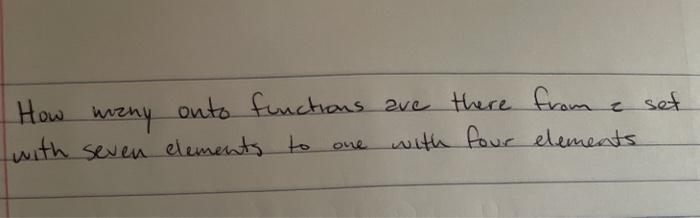 How many onto functions are there from a set
with seven elements to one with four elements